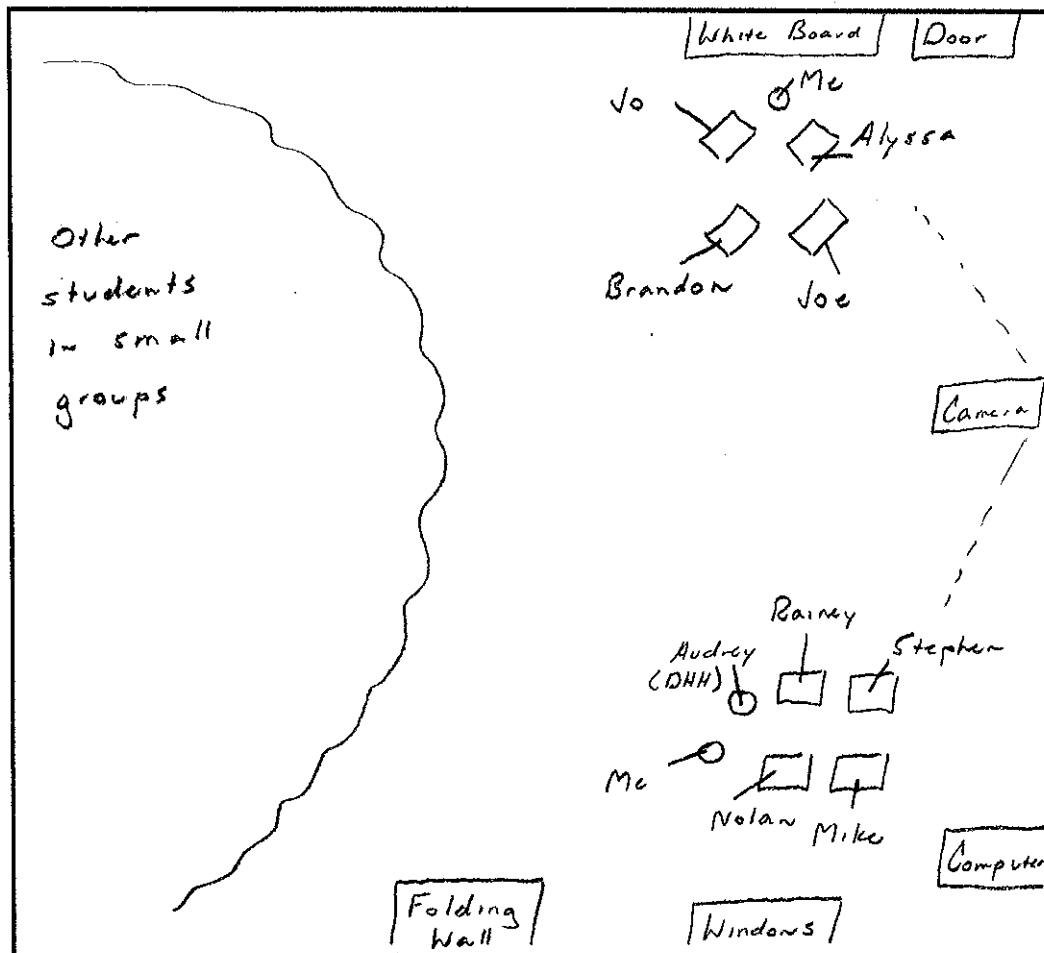 White Board
Door
Me
Jo
Alyssa
Brandon
Joe
Other
students
in small
groups
Camera
Rainey
Audrey
(DHH)
Stephen
Me
Nolan
Mike
Computer
Folding
Wall
Windows